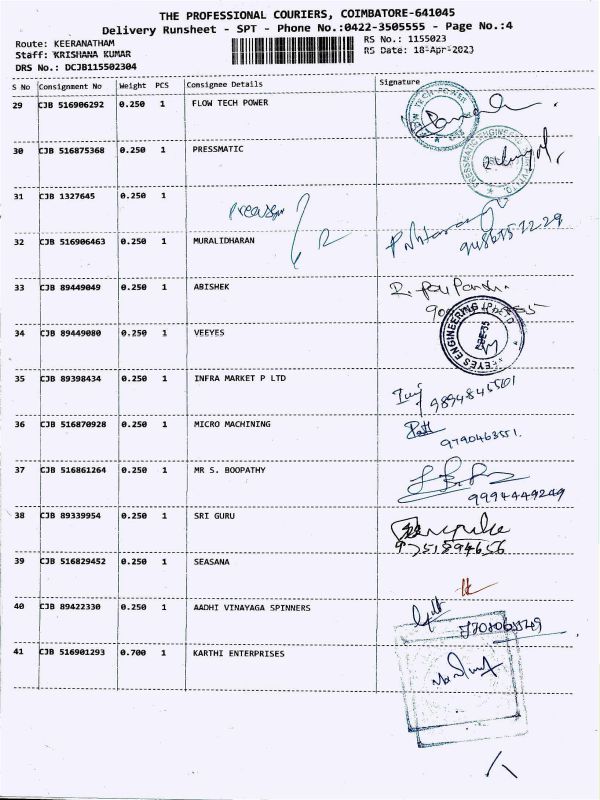 THE PROFESSIONAL COURIERS, COIMBATORE-641045
Delivery Runsheet - SPT - Phone No.:0422-3505555 - Page No.:4
Route: KEERANATHAM
RS No.: 1155023
Staff: KRISHANA KUMAR
RS Date: 18-Apr-2023
DRS No.: DCJB115502304
S No Consignment No Weight PCS Consignee Details Signature
29 CJB 516906292 0.250 1 FLOW TECH POWER
30 CJB 516875368 0.250 1 PRESSMATIC
31 CJB 1327645 0.250 1
32 CJB 516906463 0.250 1 MURALIDHARAN
33 CJB 89449049 0.250 1 ABISHEK
34 CJB 89449080 0.250 1 VEEYES
VEEYES ENGINEERING (P) LTD
35 CJB 89398434 0.250 1 INFRA MARKET P LTD
9894845501
36 CJB 516870928 0.250 1 MICRO MACHINING
9790463551.
37 CJB 516861264 0.250 1 MR S. BOOPATHY
9994449249
38 CJB 89339954 0.250 1 SRI GURU
9751894656
39 CJB 516829452 0.250 1 SEASANA
40 CJB 89422330 0.250 1 AADHI VINAYAGA SPINNERS
41 CJB 516901293 0.700 1 KARTHI ENTERPRISES